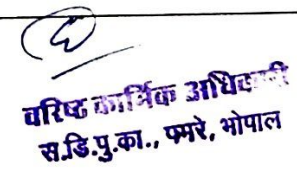 वरिष्ट कार्मिक अधिकारी
स.डि.पु.का., पमरे, भोपाल